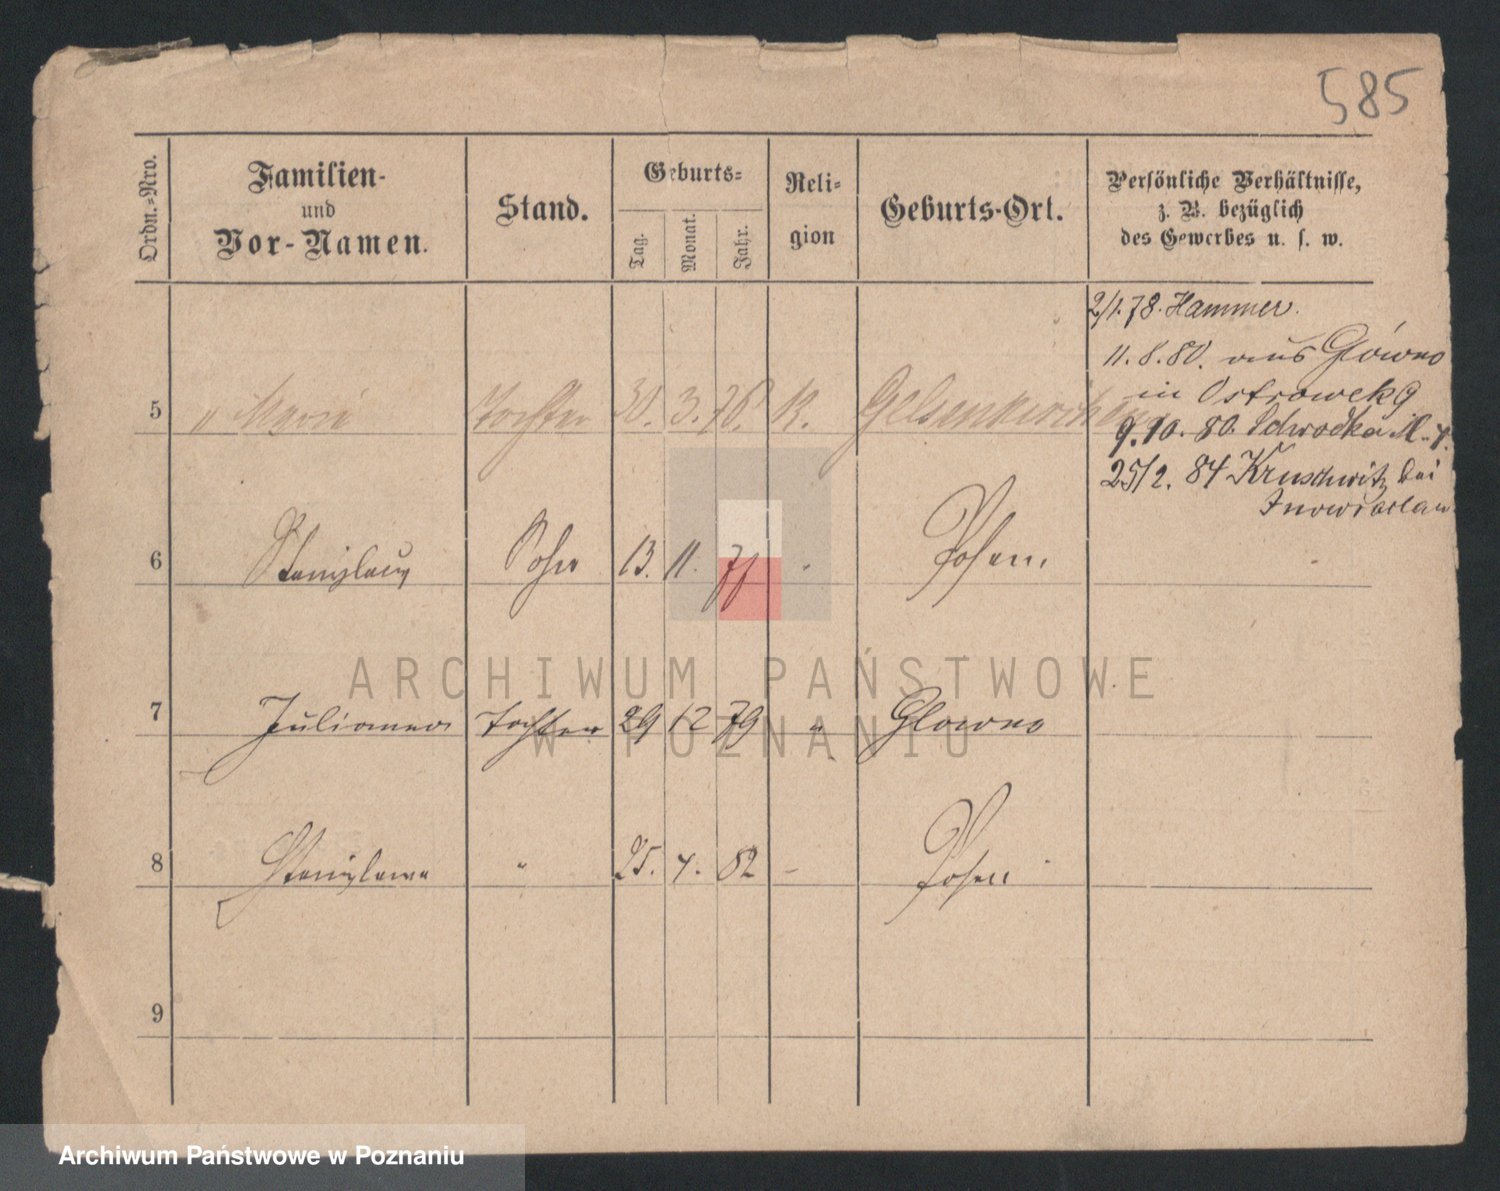 585
Ordn.-Nro.
Familien-
und
Vor-Namen.
Stand.
Geburts-
Tag.
Monat.
Jahr.
Reli-
gion
Geburts-Ort.
Persönliche Verhältnisse,
z. B. bezüglich
des Gewerbes u. s. w.
2/1. 78. Hammer.
11. 8. 80. aus Glowno
in Ostrowek 9
9. 10. 80. Schrodka M.
25/2. 84 Kruschwitz bei
Inowraclaw
5 " Marie Tochter 30. 3. 76. K. Gelsenkirchen
6 Stanislaus Sohn 13. 11. 77 " Posen
7 Julianna Tochter 29 12 79 " Glowno
8 Stanislawa " 25. 4. 82 – Posen
9
ARCHIWUM PAŃSTWOWE
W POZNANIU
Archiwum Państwowe w Poznaniu